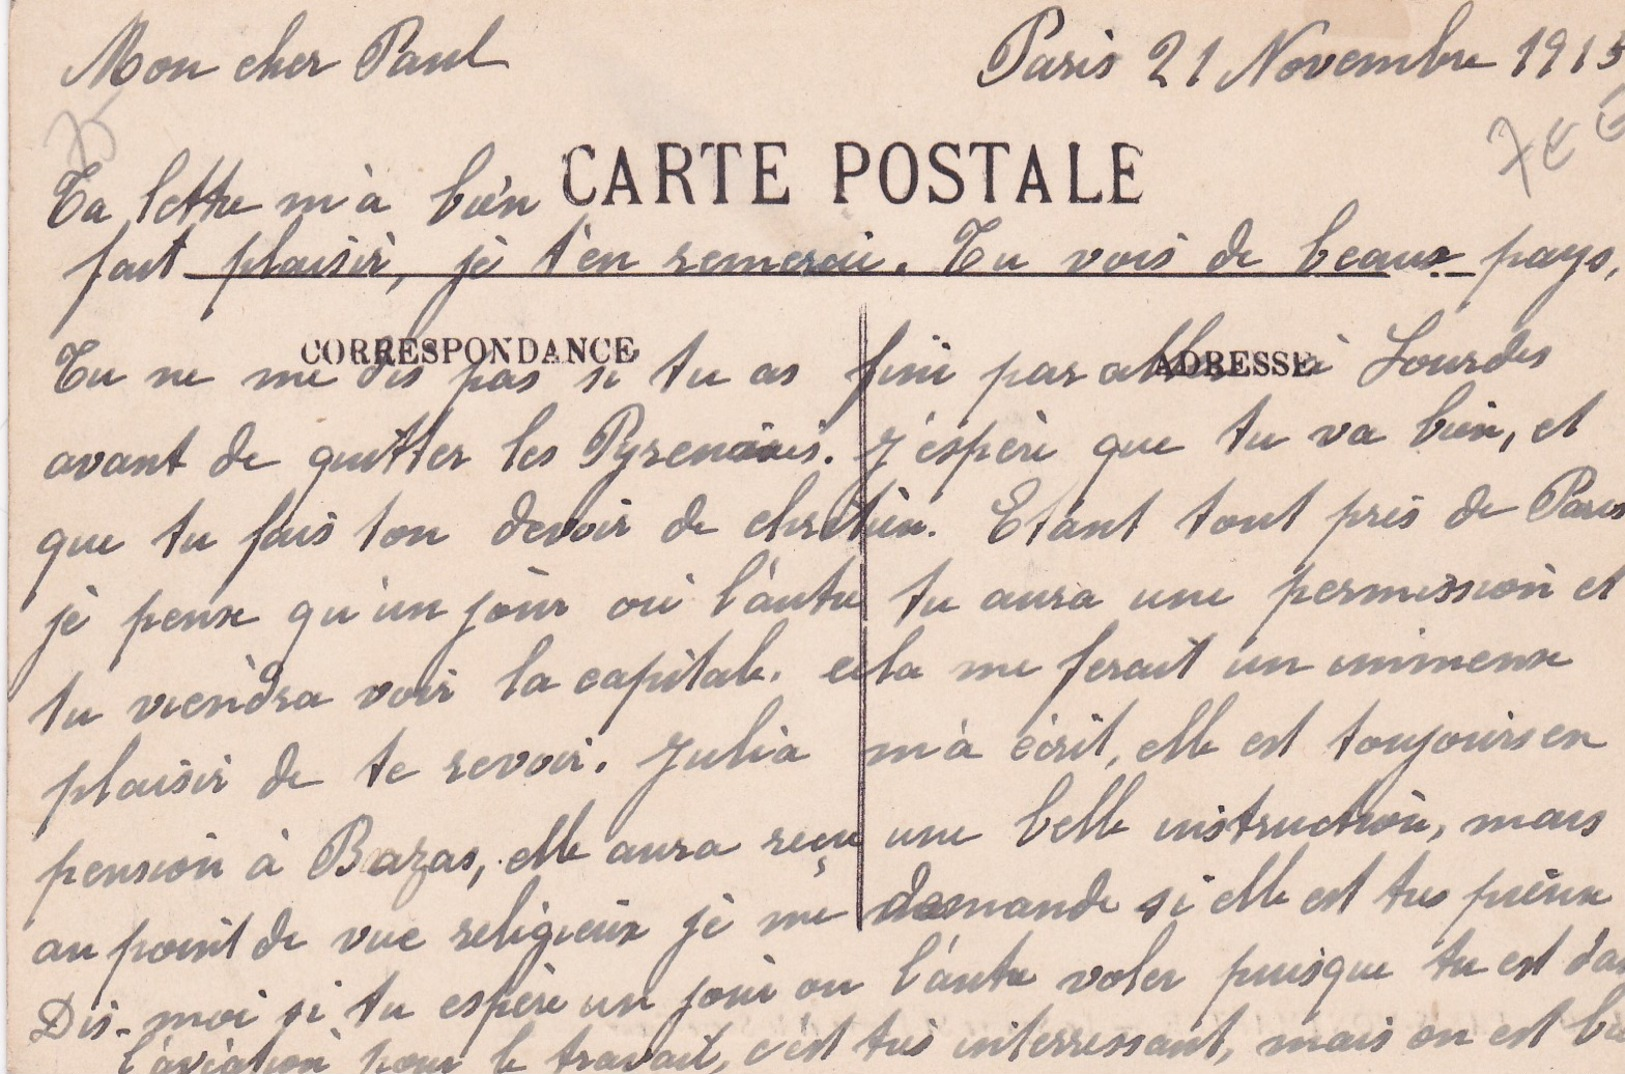 Mon cher Paul Paris 21 Novembre 1915
CARTE POSTALE
Ta lettre m'à bien
fait plaisir, je t'en remercie. Tu vois de beaux pays,
CORRESPONDANCE ADRESSE
Tu ne me dis pas si tu as fini par aller à Lourdes
avant de quitter les Pyrenées. J'espère que tu va bien, et
que tu fais ton devoir de chrétien. Etant tout près de Paris
je pense qu'un jour ou l'autre tu aura une permission et
tu viendra voir la capitale. cela me ferait un immense
plaisir de te revoir. Julia m'à écrit, elle est toujours en
pension à Bazas, elle aura reçu une belle instruction, mais
au point de vue religieux je me demande si elle est très pieuse
Dis-moi si tu espère un jour ou l'autre voler puisque tu est dans
l'aviation pour le travail, c'est très interressant, mais on est